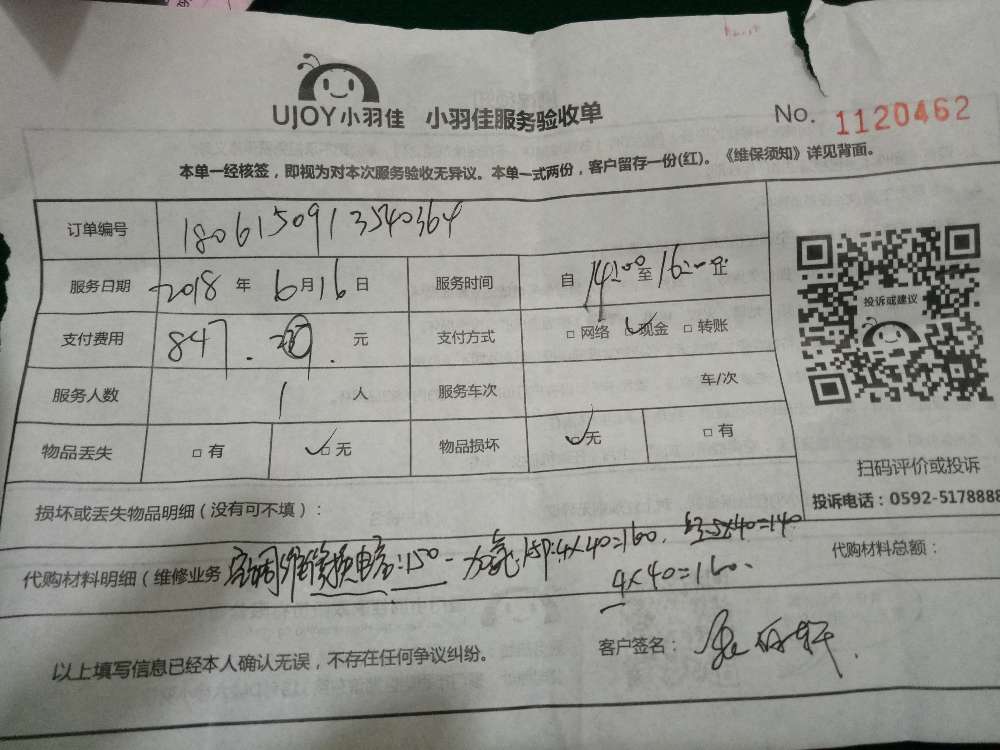 UJOY小羽佳 小羽佳服务验收单 No. 1120462
本单一经核签，即视为对本次服务验收无异议。本单一式两份，客户留存一份(红)。《维保须知》详见背面。
订单编号 1806150913540364
服务日期 2018 年 6 月 16 日 服务时间 自 14:00 至 16:00 止
支付费用 847. 元 支付方式 □ 网络 ☑ 现金 □ 转账
服务人数 1 人 服务车次 车/次
物品丢失 □ 有 ☑ 无 物品损坏 ☑ 无 □ 有
投诉或建议
扫码评价或投诉
投诉电话：0592-5178888
损坏或丢失物品明细（没有可不填）：
代购材料明细（维修业务 空调维修换电容:150 加氟:1.5P:4×40=160. 3.5×40=140
4×40=160.
代购材料总额：
以上填写信息已经本人确认无误，不存在任何争议纠纷。 客户签名：